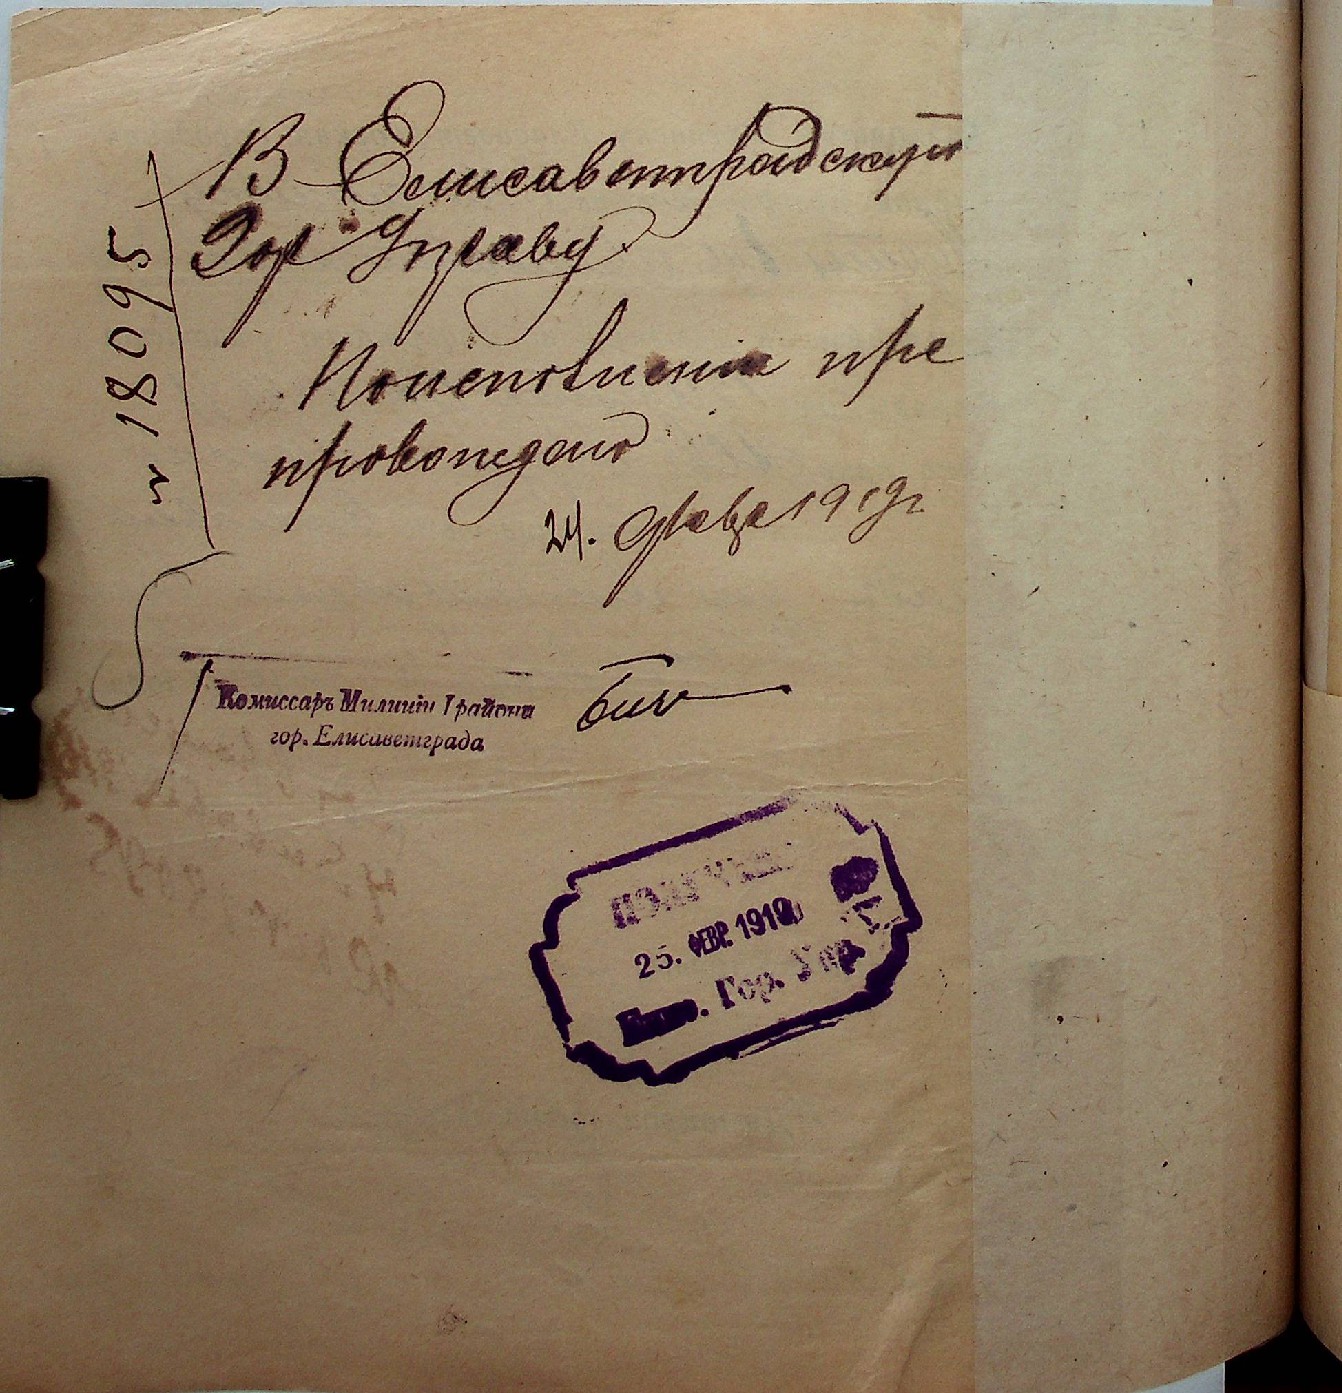 № 18095
В Елисаветградскую
Гор Управу
По исполнении пре
провождено
24. Февр 1919 г
Комиссаръ Милиціи I района
гор. Елисаветграда
ПОЛУЧЕНО
25. ФЕВР. 1919
Гор. Упр